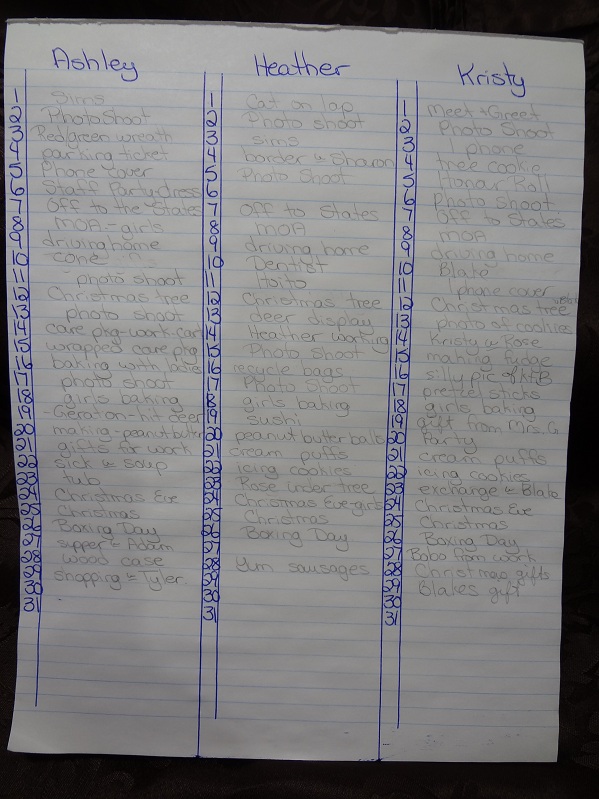 Ashley
1 Sims
2 Photo Shoot
3 Red green wreath
4 parking ticket
5 Phone cover
6 Staff Party dress
7 Off to the States
8 MOA - girls
9 driving home
10 cone
11 photo shoot
12 Christmas tree
13 photo shoot
14 care pkg-work-cart
15 wrapped care pkg
16 baking with
17 photo shoot
18 girls baking
19 -hit deer
20 making-peanut butter
21 gifts for work
22 sick w soup
23 tub
24 Christmas Eve
25 Christmas
26 Boxing Day
27 supper w Adam
28 wood case
29 w Tyler.
30
31
Heather
1 Cat on lap
2 Photo shoot
3 sims
4 border w Sharon
5 Photo Shoot
6
7 Off to States
8 MOA
9 driving home
10 Dentist
11 Hoito
12 Christmas tree
13 deer display
14 Heather working
15 Photo Shoot
16 recycle bags
17 Photo Shoot
18 girls baking
19 sushi
20 peanut butter balls
21 cream puffs
22 icing cookies
23 Rose under tree
24 Christmas Eve-girls
25 Christmas
26 Boxing Day
27
28 Yum sausages
29
30
31
Kristy
1 Meet + Greet
2 Photo Shoot
3 I phone
4 tree cookie
5 Honar Roll
6 Photo Shoot
7 Off to States
8 MOA
9 driving home
10 Blake
11 Iphone cover
12 Christmas tree
13 photo of cookies
14 Kristy w Rose
15 making fudge
16 silly pic of
17 pretzel sticks
18 girls baking
19 gift from Mrs. G
20 Party
21 cream puffs
22 icing cookies
23 exchange w Blake
24 Christmas Eve
25 Christmas
26 Boxing Day
27 Bobo from work
28 Christmas gifts
29 Blakes gift
30
31